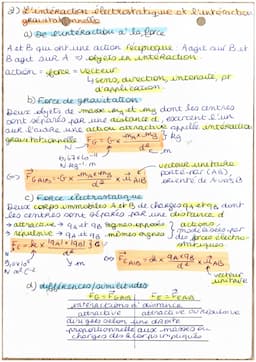 2) L'interaction électrostatique et l'interaction
gravitationnelle
a) De l'interaction à la force
A et B qui ont une action réciproque : A agit sur B et
B agit sur A ⇒ objets en interaction.
action = force = vecteur
↳ sens, direction, intensité, pt
d'application.
b) Force de gravitation
Deux objets de masse mA et mB dont les centres
sont séparés par une distance d, exercent l'un
sur l'autre une action attractive appelée interaction
gravitationnelle
Fg = G × mA × mB / d²
kg
m
N
6,67×10⁻¹¹
N.kg⁻².m²
(=) FGA/B = - G × mA × mB / d² × uA/B
vecteur unitaire
porté par (AB),
orienté de A vers B
c) Force électrostatique
Deux corps immobiles A et B de charges qA et qB dont
les centres sont séparés par une distance d
• attractive → qA et qB signes opposés
• répulsive → qA et qB mêmes signes
actions
modélisées par
des forces électro-
statiques
FE = k × |qA| × |qB| / d²
C
m
N
(=) FEA/B = k × qA × qB / d² × uA/B
vecteur
unitaire
d) différences/similitudes
FG = FGA/B | FE = FEA/B
interactions à distance
attractive | attractive ou répulsive
dirigées selon une droite
proportionnelle aux masses ou
charges des 2 corps impliqués